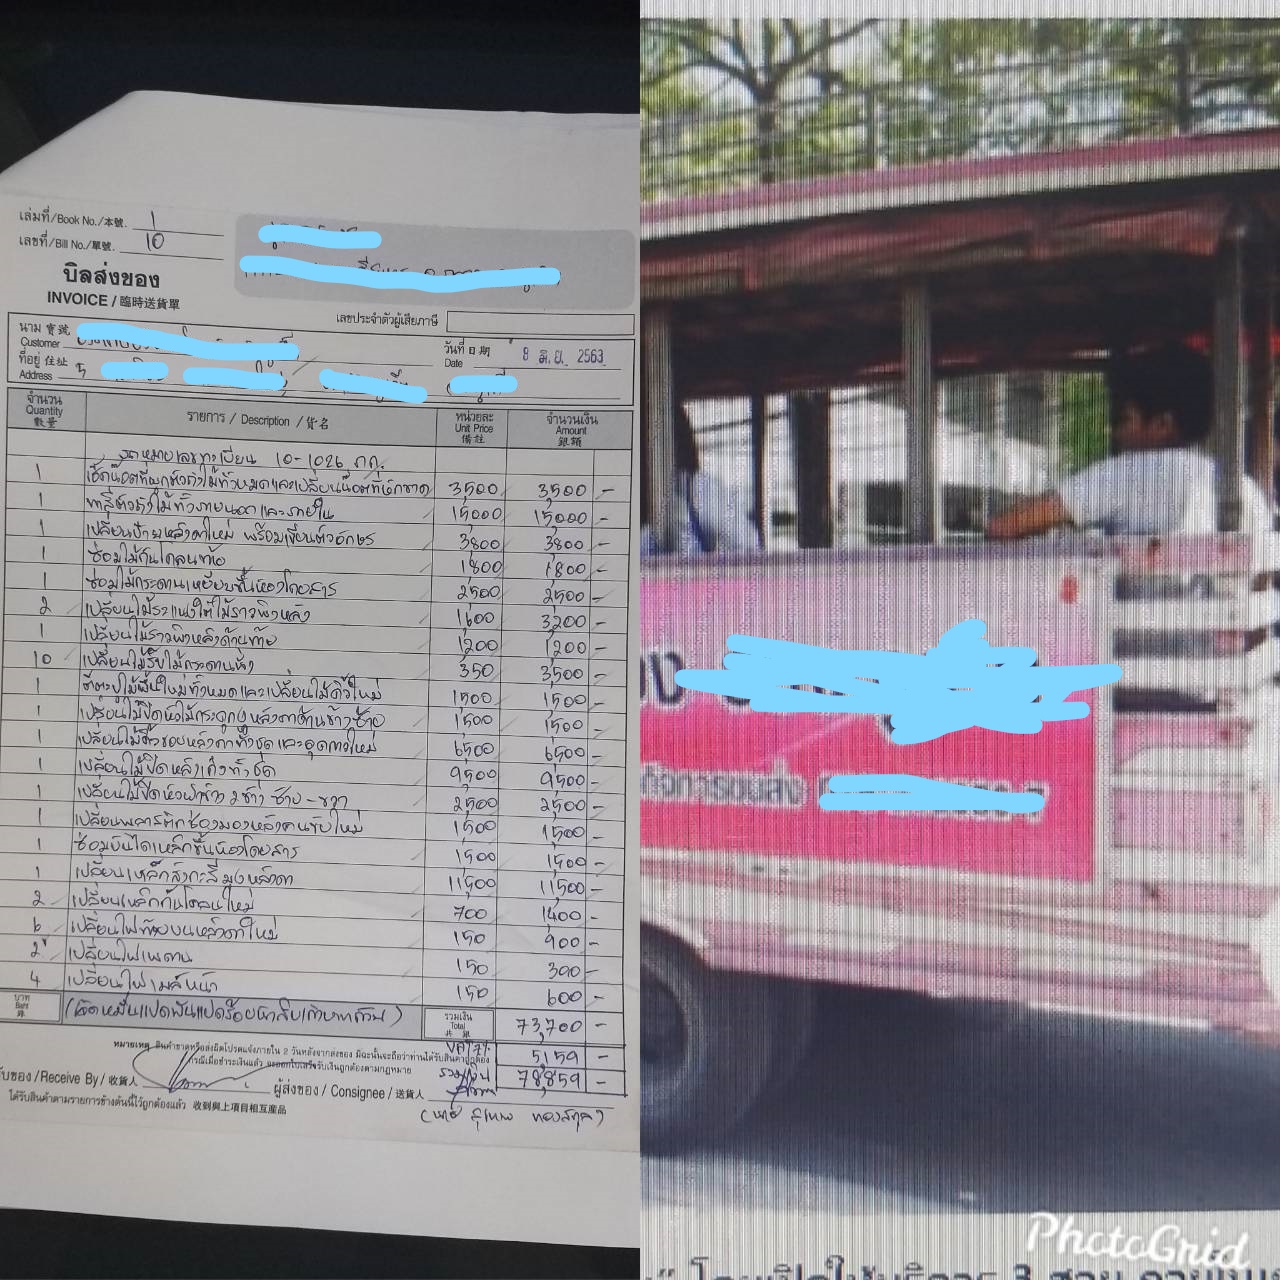 เล่มที่/Book No./本號. 1
เลขที่/Bill No./單號. 10
บิลส่งของ
INVOICE / 臨時送貨單
เลขประจำตัวผู้เสียภาษี
นาม 寶號
Customer
วันที่ 日期 Date 8 มิ.ย. 2563
ที่อยู่ 住址
Address 5
จำนวน Quantity 數量 รายการ / Description / 貨名 หน่วยละ Unit Price 備註 จำนวนเงิน Amount 銀額
หมายเลขทะเบียน 10-1026 ภก.
1 เช็คน๊อตที่ผูกตัวถังไม้ทั้งหมดและเปลี่ยนน๊อตที่ชำรุด 3,500 3,500 -
1 ทาสีตัวถังไม้ทั้งภายนอกและภายใน 15,000 15,000 -
1 เปลี่ยนป้ายหลังคาใหม่ พร้อมเขียนตัวอักษร 3,800 3,800 -
1 ซ่อมไม้กันโคลนท้าย 1,800 1,800 -
1 ซ่อมไม้กระดานเหยียบขึ้นห้องโดยสาร 2,500 2,500 -
2 เปลี่ยนไม้ระแนงใต้ไม้ราวพิงหลัง 1,600 3,200 -
1 เปลี่ยนไม้ราวพิงหลังด้านท้าย 1,200 1,200 -
10 เปลี่ยนไม้รับไม้กระดานนั่ง 350 3,500 -
1 ตีตะปูไม้พื้นใหม่ทั้งหมดและเปลี่ยนไม้คิ้วใหม่ 1,500 1,500 -
1 เปลี่ยนไม้ปิดหัวไม้กระดูกงูหลังคาด้านข้างซ้าย 1,500 1,500 -
1 เปลี่ยนไม้คิ้วขอบหลังคาทั้งชุดและอุดกาวใหม่ 6,500 6,500 -
1 เปลี่ยนไม้ปิดหลังเก๋งทั้งชุด 9,500 9,500 -
1 เปลี่ยนไม้ปิดหัวเสาข้าง 2 ข้าง ซ้าย-ขวา 2,500 2,500 -
1 เปลี่ยนพลาสติกช่องมองหลังคนขับใหม่ 1,500 1,500 -
1 ซ่อมบันไดเหล็กขึ้นห้องโดยสาร 1,500 1,500 -
1 เปลี่ยนเหล็กสังกะสีมุงหลังคา 11,500 11,500 -
2 เปลี่ยนเหล็กกันโคลนใหม่ 700 1,400 -
6 เปลี่ยนไฟท้ายบนหลังคาใหม่ 150 900 -
2 เปลี่ยนไฟเพดาน 150 300 -
4 เปลี่ยนไฟเมล์หน้า 150 600 -
บาท Baht (เจ็ดหมื่นแปดพันแปดร้อยห้าสิบเก้าบาทถ้วน) รวมเงิน Total 73,700 -
VAT 7% 5,159 -
รวมเงิน 78,859 -
หมายเหตุ สินค้าขาดหรือส่งผิดโปรดแจ้งภายใน 2 วันหลังจากส่งของ มิฉะนั้นจะถือว่าท่านได้รับสินค้าถูกต้อง
กรณีเมื่อชำระเงินแล้ว จะออกใบเสร็จรับเงินถูกต้องตามกฎหมาย
รับของ/Receive By/收貨人 ผู้ส่งของ / Consignee / 送貨人
ได้รับสินค้าตามรายการข้างต้นนี้ไว้ถูกต้องแล้ว 收到與上項目相互産品
กิจการขนส่ง
PhotoGrid